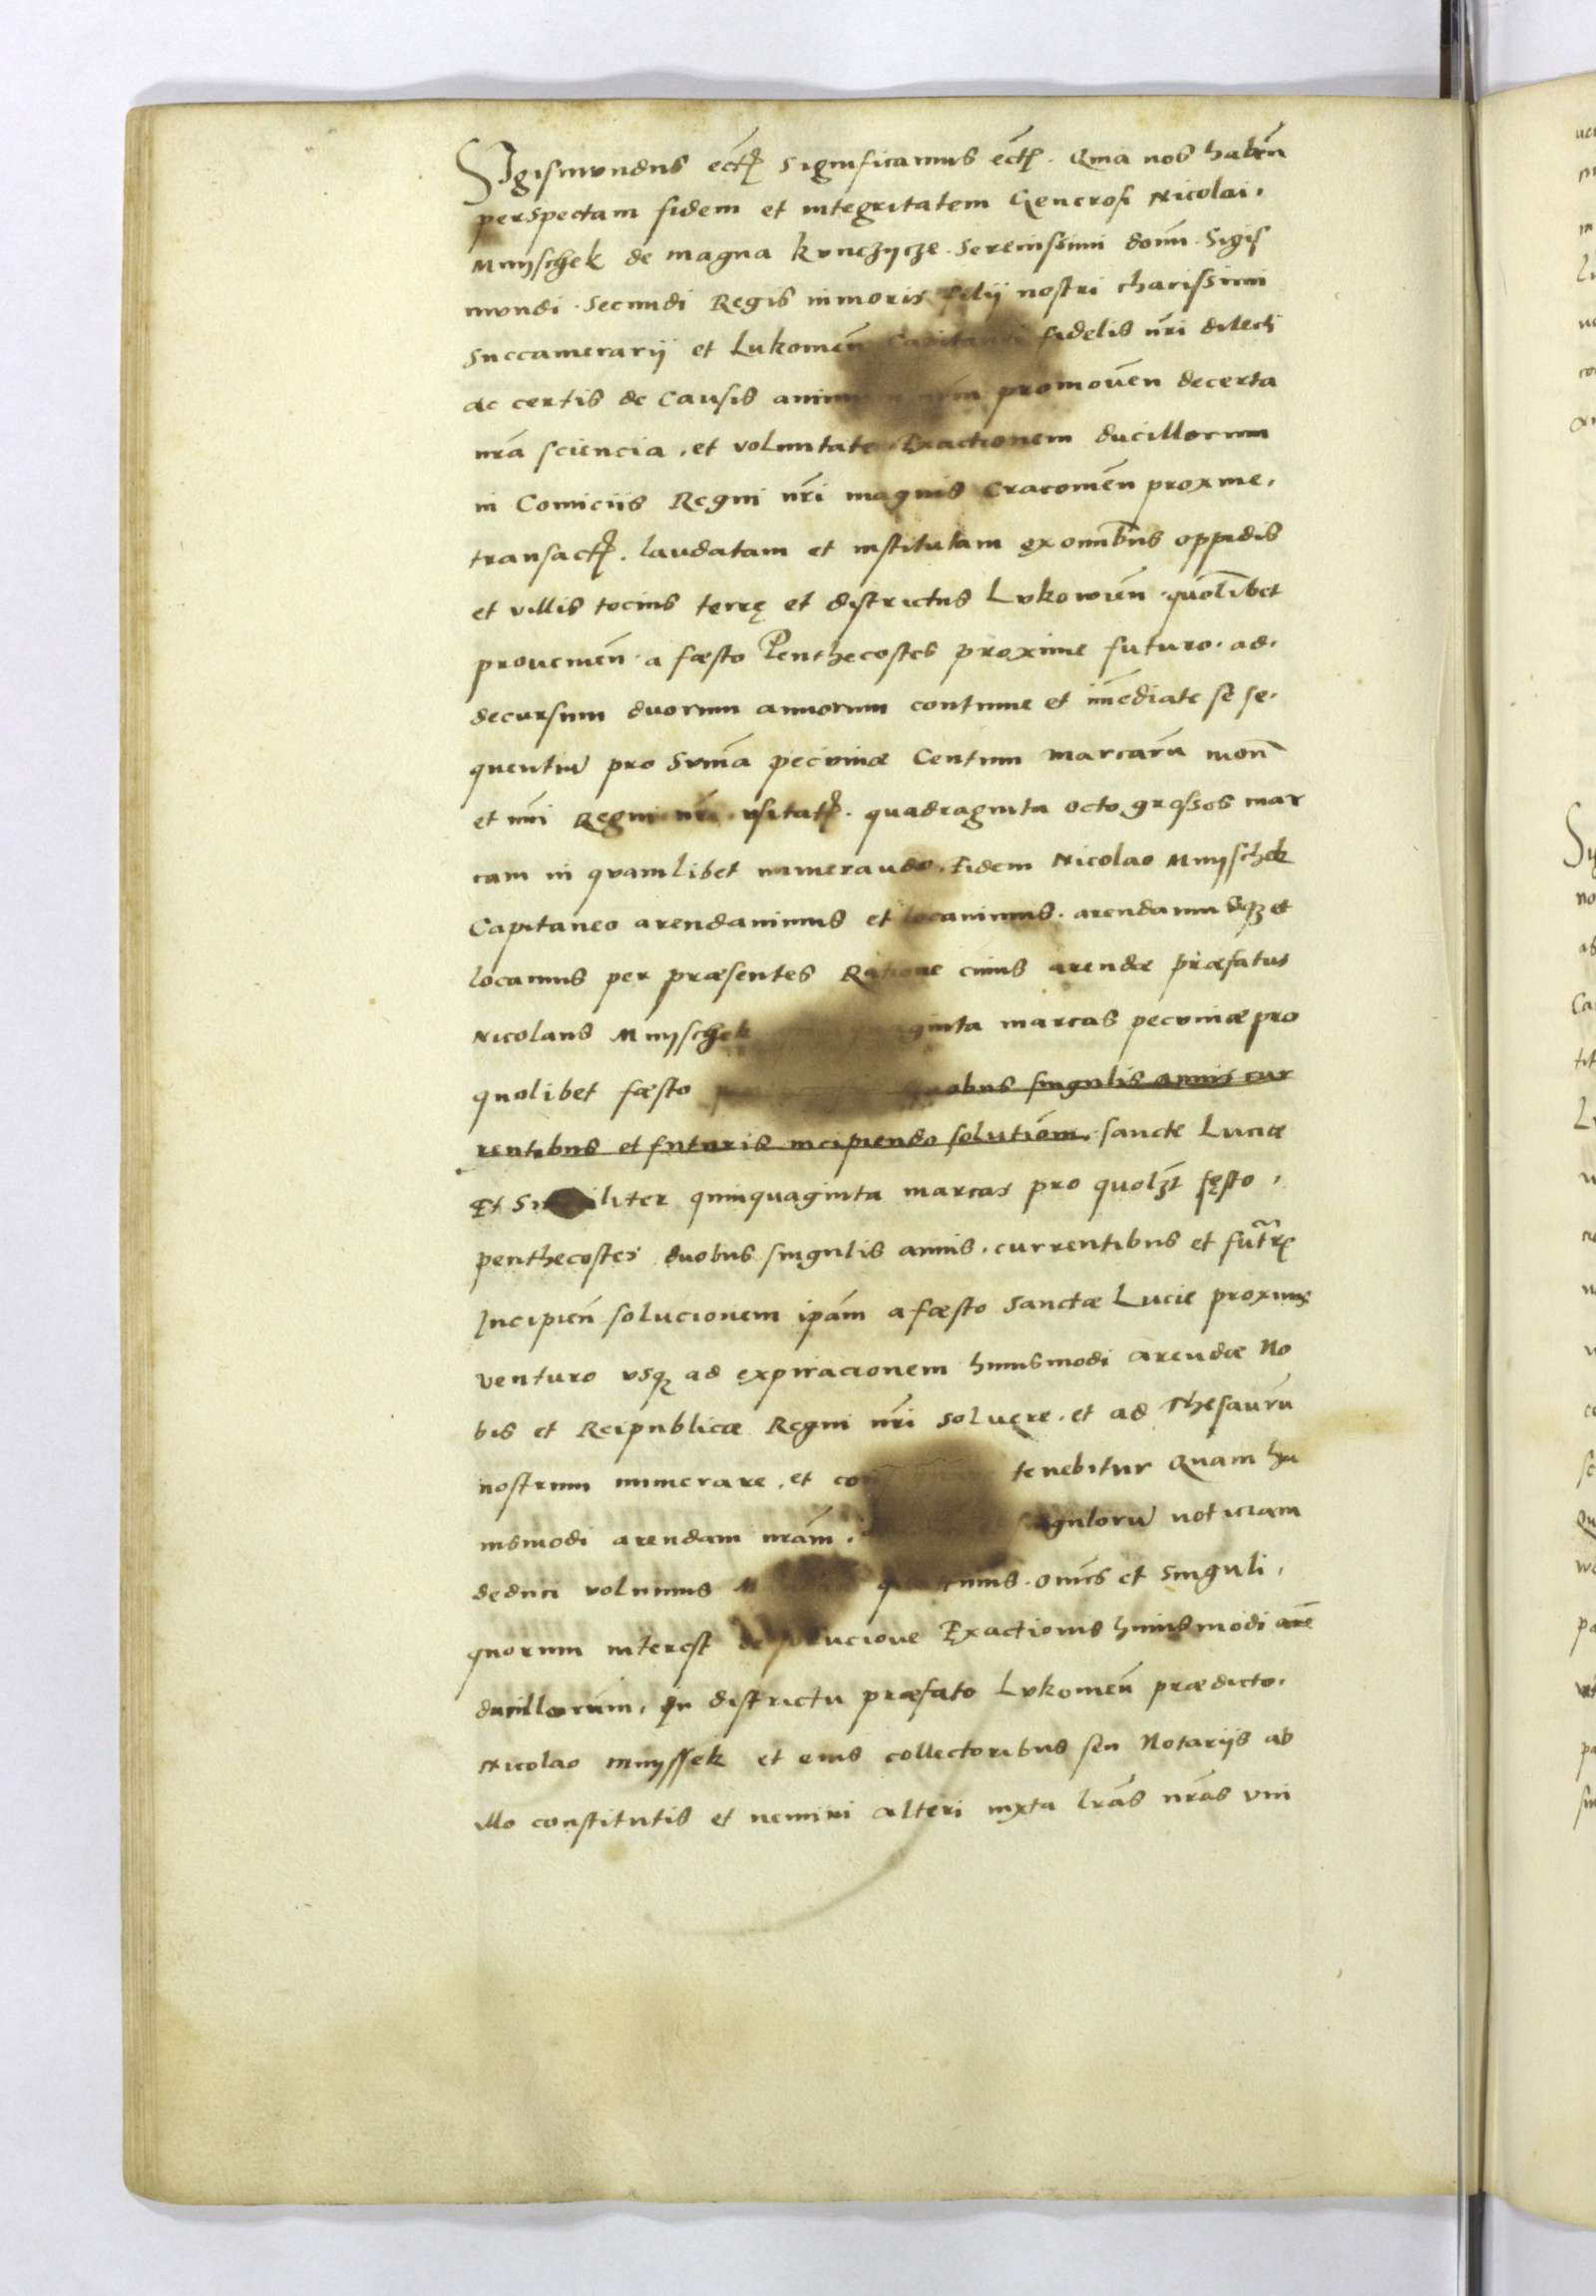 Sigismundus ectꝭ significamus ectꝭ. Quia nos habeñ
perspectam fidem et integritatem Generosi Nicolai.
Mnyschek de magna kunczycze. Serenissimi domi. Sigis
mundi. Secundi Regis iunioris filij nostri charissimi
Succamerarij et Lukomeñ Capitanei fidelis nr̃i dilecti
ac certis de causis promoueñ decerta
nr̃a sciencia. et voluntate Exactionem ducillorum
in Comiciis Regni nr̃i magnis Cracouieñ proxime.
transactꝭ. laudatam et institutam ex omnibus oppidis
et villis tocius terrę et districtus Lukowieñ. quol̃ibet
prouenieñ. a fæsto Penthecostes proxime futuro. ad.
decursum duorum annorum continue et im̃ediate se se.
quentiũ pro Sum̃a pecuniæ Centum marcarũ mon̄
et nũi Regni nr̃i. vsitatꝭ. quadraginta octo grossos mar
cam in quamlibet numerando. Eidem Nicolao Mnyschek
Capitaneo arendauimus et locauimus. arendamusqꝫ et
locamus per præsentes Ratione cuius arendæ præfatus
Nicolaus Mnyschek ginta marcas pecuniæ pro
quolibet fæsto obus singulis annis cur
rentibus et futuris incipiendo soluti&#333;em. sancte Luciæ
Et Similiter quinquaginta marcas pro quolꝫt fęsto.
penthecostes duobus singulis annis. currentibus et futurꝭ
Incipieñ solucionem ip̃am a fæsto Sanctæ Lucie proxime
venturo vsqꝫ ad expiracionem huiusmodi arendæ No
bis et Reipublicæ Regni nr̃i soluere. et ad Thesaurũ
nostrum numerare. et con tenebitur Quam hu
iusmodi arendam nr̃am. gulorũ noticiam
deduci volumus M. om̃es et singuli.
quorum interest de solucione Exactionis huiusmodi are
ducillorum. In districtu præfato Lukomeñ prædicto.
Nicolao mnyssek et eius collectoribus seu Notarijs ab
illo constitutis et nemini alteri iuxta lr̃as nr̃as vni